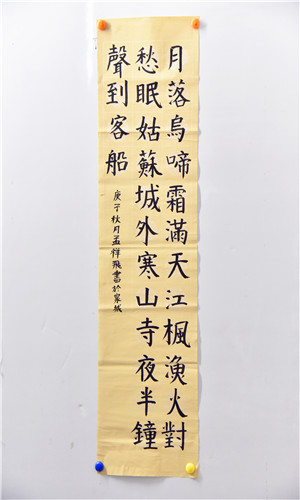 月落烏啼霜滿天江楓漁火對
愁眠姑蘇城外寒山寺夜半鐘
聲到客船
庚子秋月孟祥飛書於城